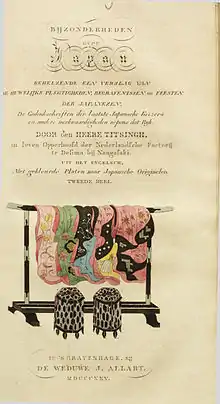 BIJZONDERHEDEN
OVER
Japan
BEHELZENDE EEN VERSLAG VAN
DE HUWELIJKS PLEGTIGHEDEN, BEGRAFENISSEN EN FEESTEN
DER JAPANEZEN,
De Gedenkschriften der laatste Japansche Keizers
en andere merkwaardigheden nopens dat Ryk.
DOOR den HEERE TITSINGH,
in leven Opperhoofd der Nederlandsche Factory
te Desima, bij Nangasaki.
UIT HET ENGELSCH,
Met gekleurde Platen naar Japansche Originelen.
TWEEDE DEEL.
IN 'S GRAVENHAGE, bij
DE WEDUWE J. ALLART.
MDCCCXXV.